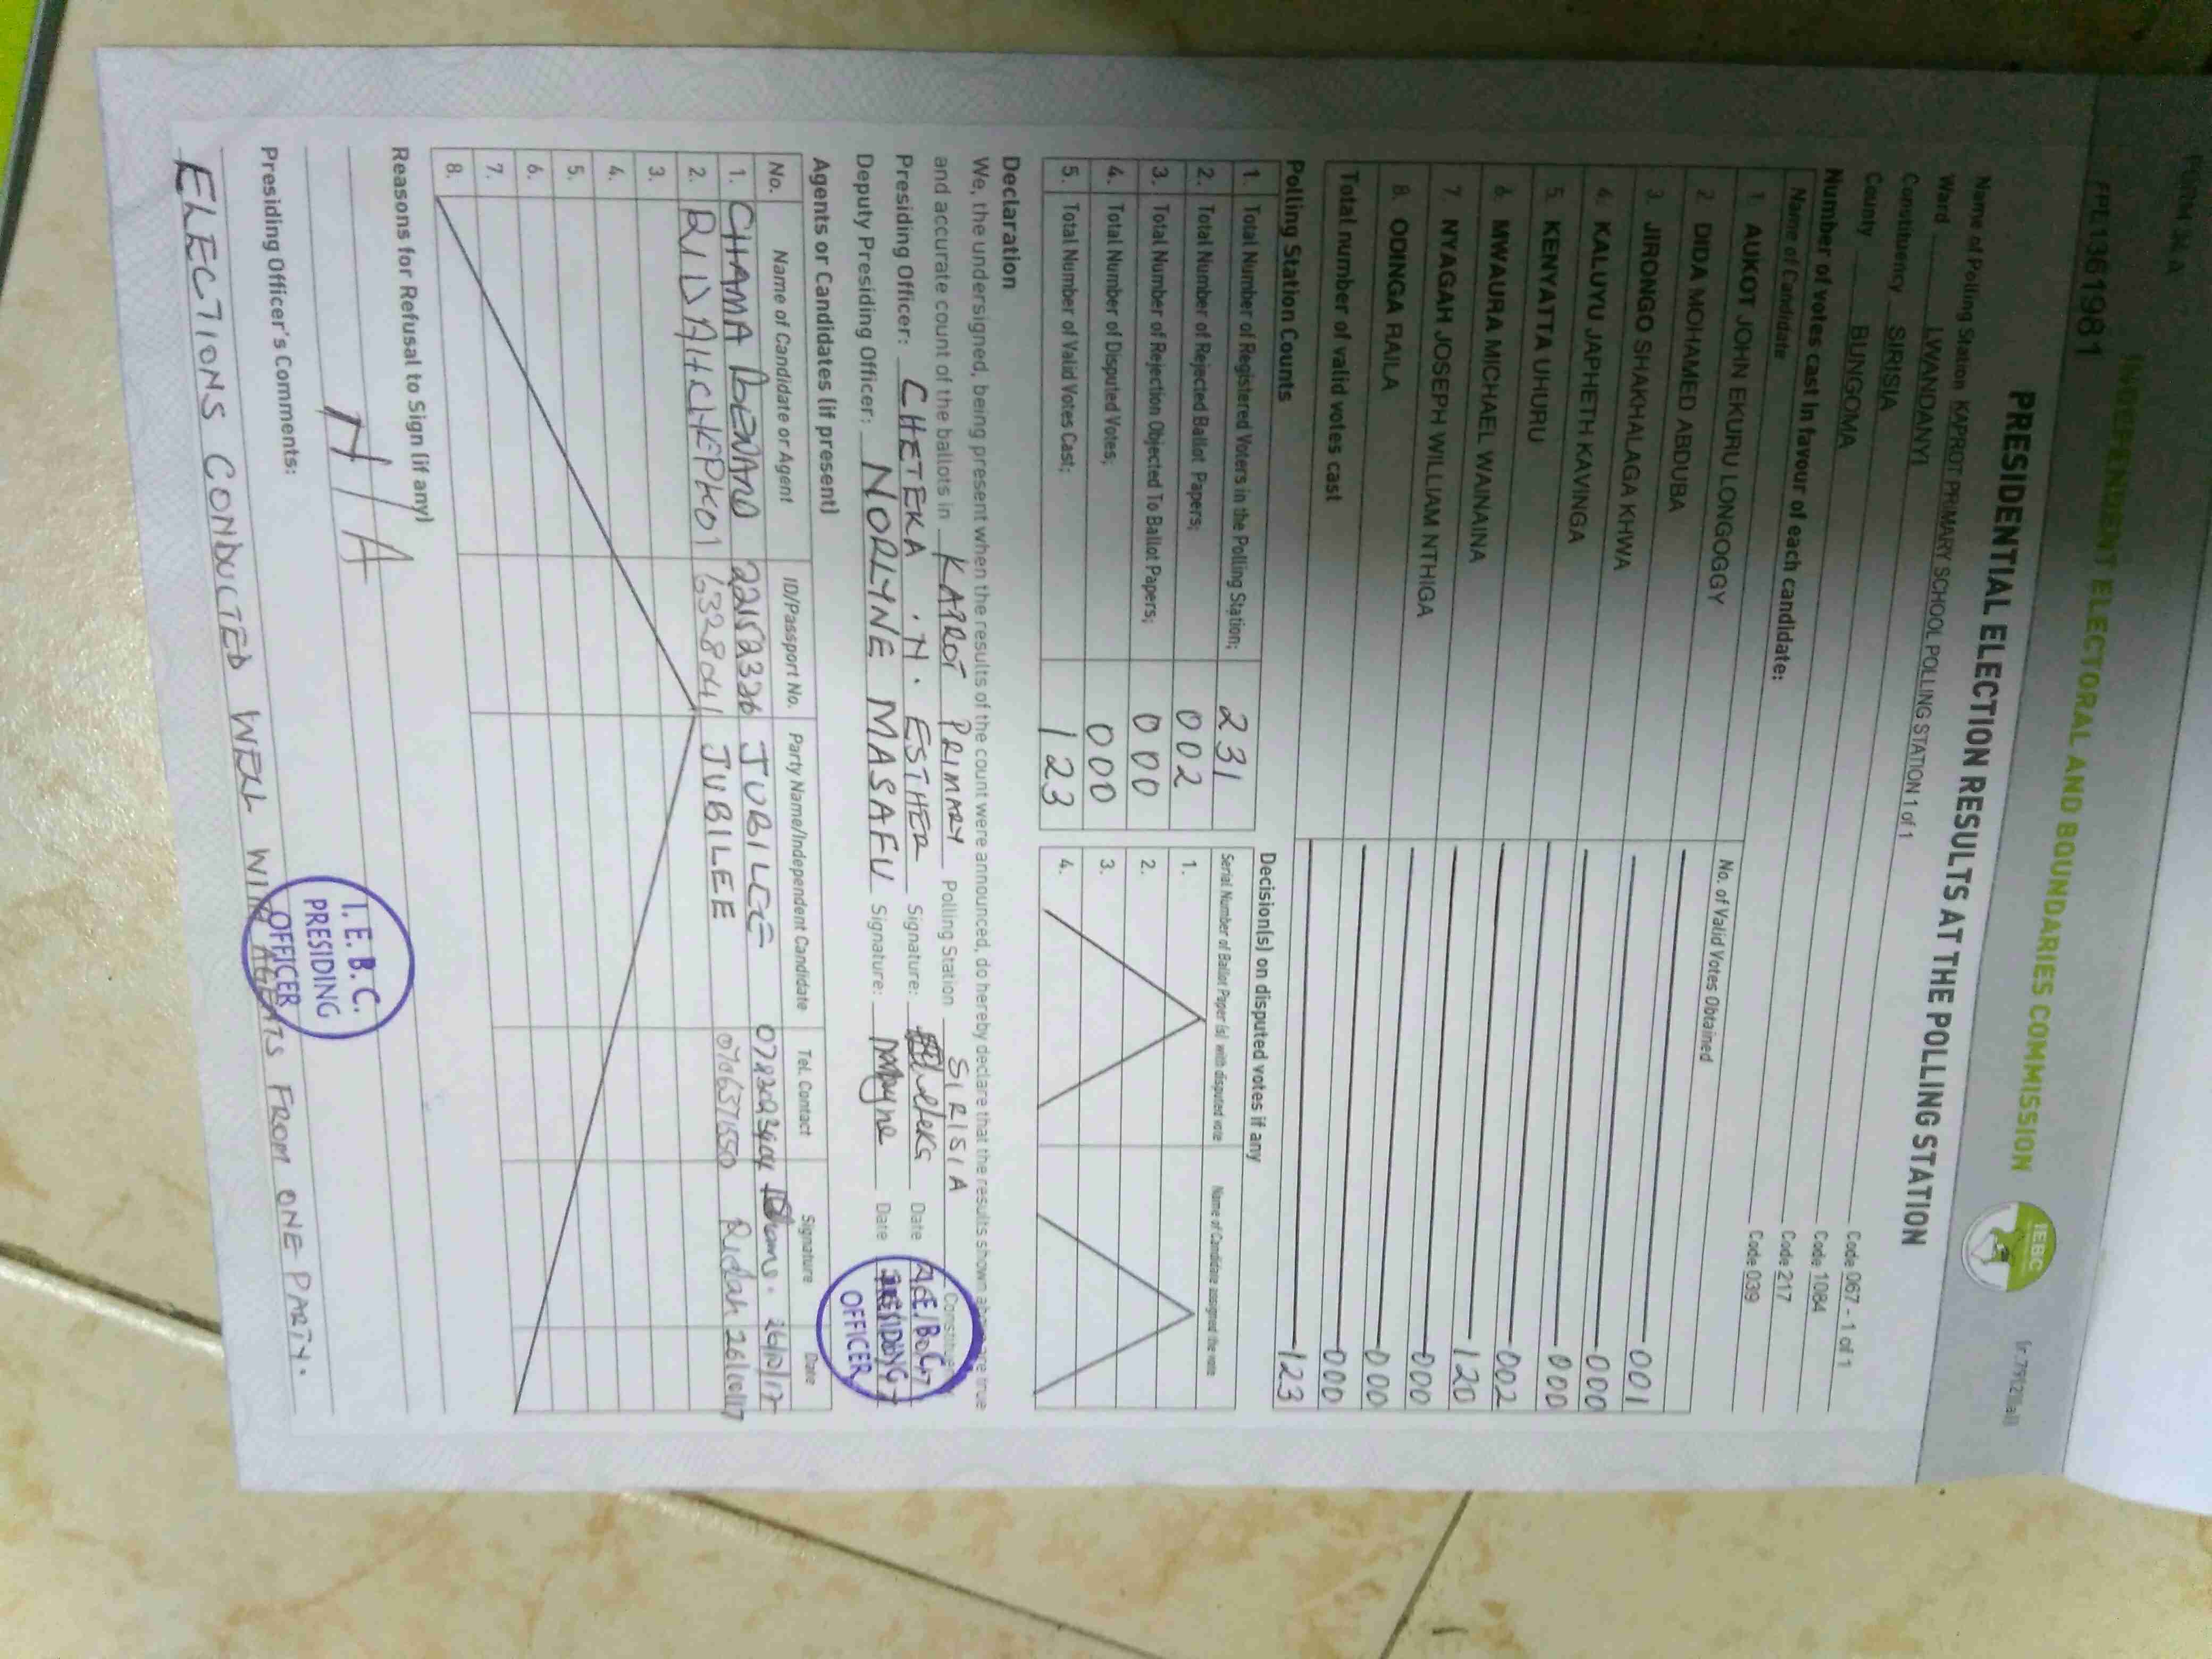 FORM 34A
FPL1361981
INDEPENDENT ELECTORAL AND BOUNDARIES COMMISSION
IEBC
PRESIDENTIAL ELECTION RESULTS AT THE POLLING STATION
Name of Polling Station KAPROT PRIMARY SCHOOL POLLING STATION 1 of 1 Code 067 - 1 of 1
Ward LWANDANYI Code 1084
Constituency SIRISIA Code 217
County BUNGOMA Code 039
Number of votes cast in favour of each candidate:
Name of Candidate No. of Valid Votes Obtained
1. AUKOT JOHN EKURU LONGOGGY 001
2. DIDA MOHAMED ABDUBA 000
3. JIRONGO SHAKHALAGA KHWA 000
4. KALUYU JAPHETH KAVINGA 002
5. KENYATTA UHURU 120
6. MWAURA MICHAEL WAINAINA 000
7. NYAGAH JOSEPH WILLIAM NTHIGA 000
8. ODINGA RAILA 000
Total number of valid votes cast 123
Polling Station Counts
1. Total Number of Registered Voters in the Polling Station; 231
2. Total Number of Rejected Ballot Papers; 002
3. Total Number of Rejection Objected To Ballot Papers; 000
4. Total Number of Disputed Votes; 000
5. Total Number of Valid Votes Cast; 123
Decision(s) on disputed votes if any
Serial Number of Ballot Paper (s) with disputed vote Name of Candidate assigned the vote
1.
2.
3.
4.
Declaration
We, the undersigned, being present when the results of the count were announced, do hereby declare that the results shown above are true
and accurate count of the ballots in KAPROT PRIMARY Polling Station SIRISIA Constituency
Presiding Officer: CHETEKA .N. ESTHER Signature: Cheteka Date
Deputy Presiding Officer: NORLYNE MASAFU Signature: Date
I.E.B.C.
PRESIDING
OFFICER
Agents or Candidates (if present)
No. Name of Candidate or Agent ID/Passport No. Party Name/Independent Candidate Tel. Contact Signature Date
1. CHAMA BENARD 22152326 JUBILEE 26/10/17
2. RIDAH CHEPKOI JUBILEE 0706371550 Ridah 26/10/17
3.
4.
5.
6.
7.
8.
Reasons for Refusal to Sign (if any)
N/A
Presiding Officer's Comments:
ELECTIONS CONDUCTED WELL WITH AGENTS FROM ONE PARTY.
I.E.B.C.
PRESIDING
OFFICER